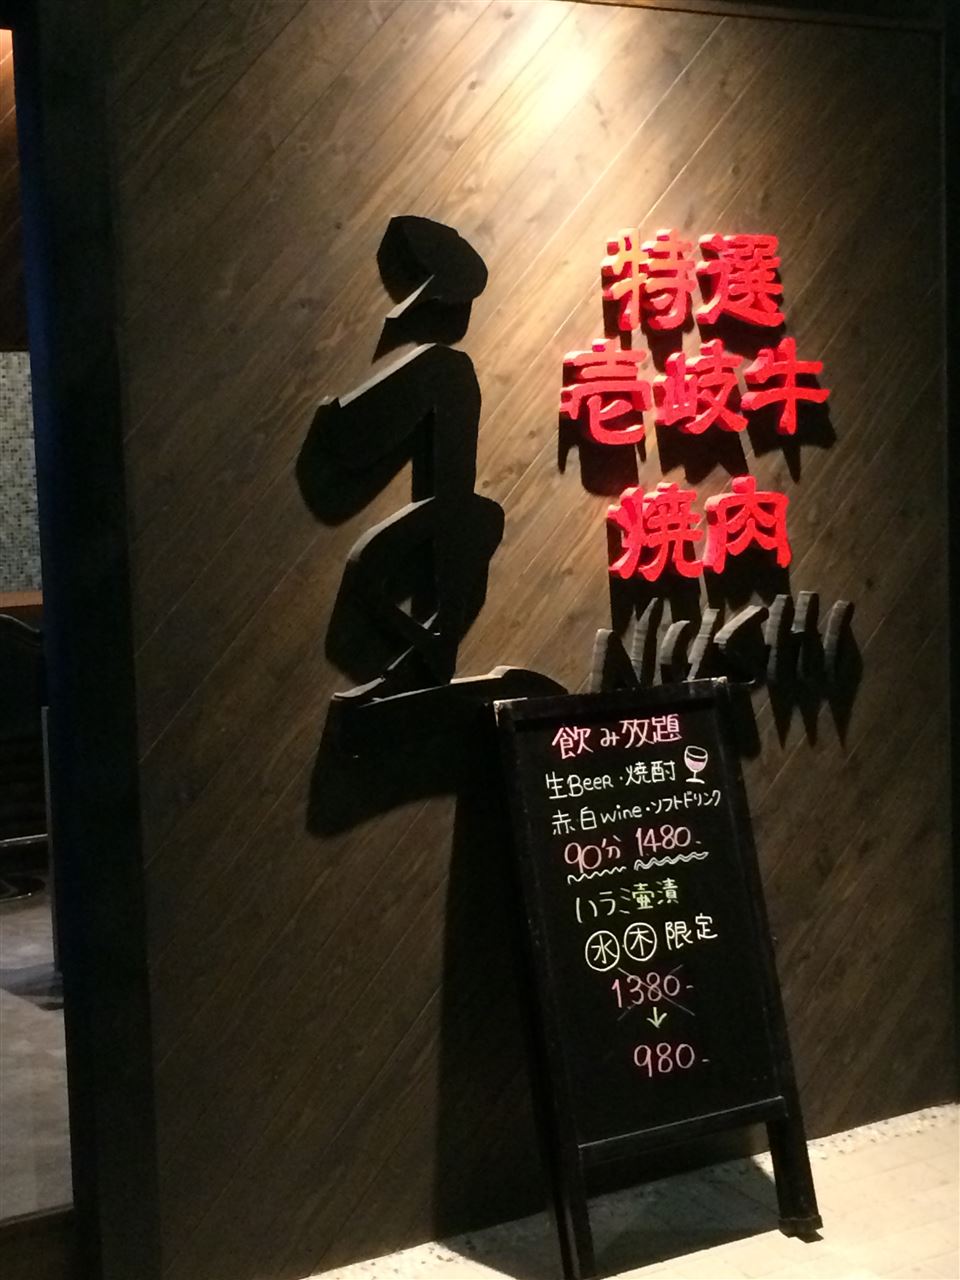 特選
壱岐牛
焼肉
飲み放題
生Beer・焼酎
赤・白wine・ソフトドリンク
90分 1480-
ハラミ壷漬
水 木 限定
1380-
↓
980-